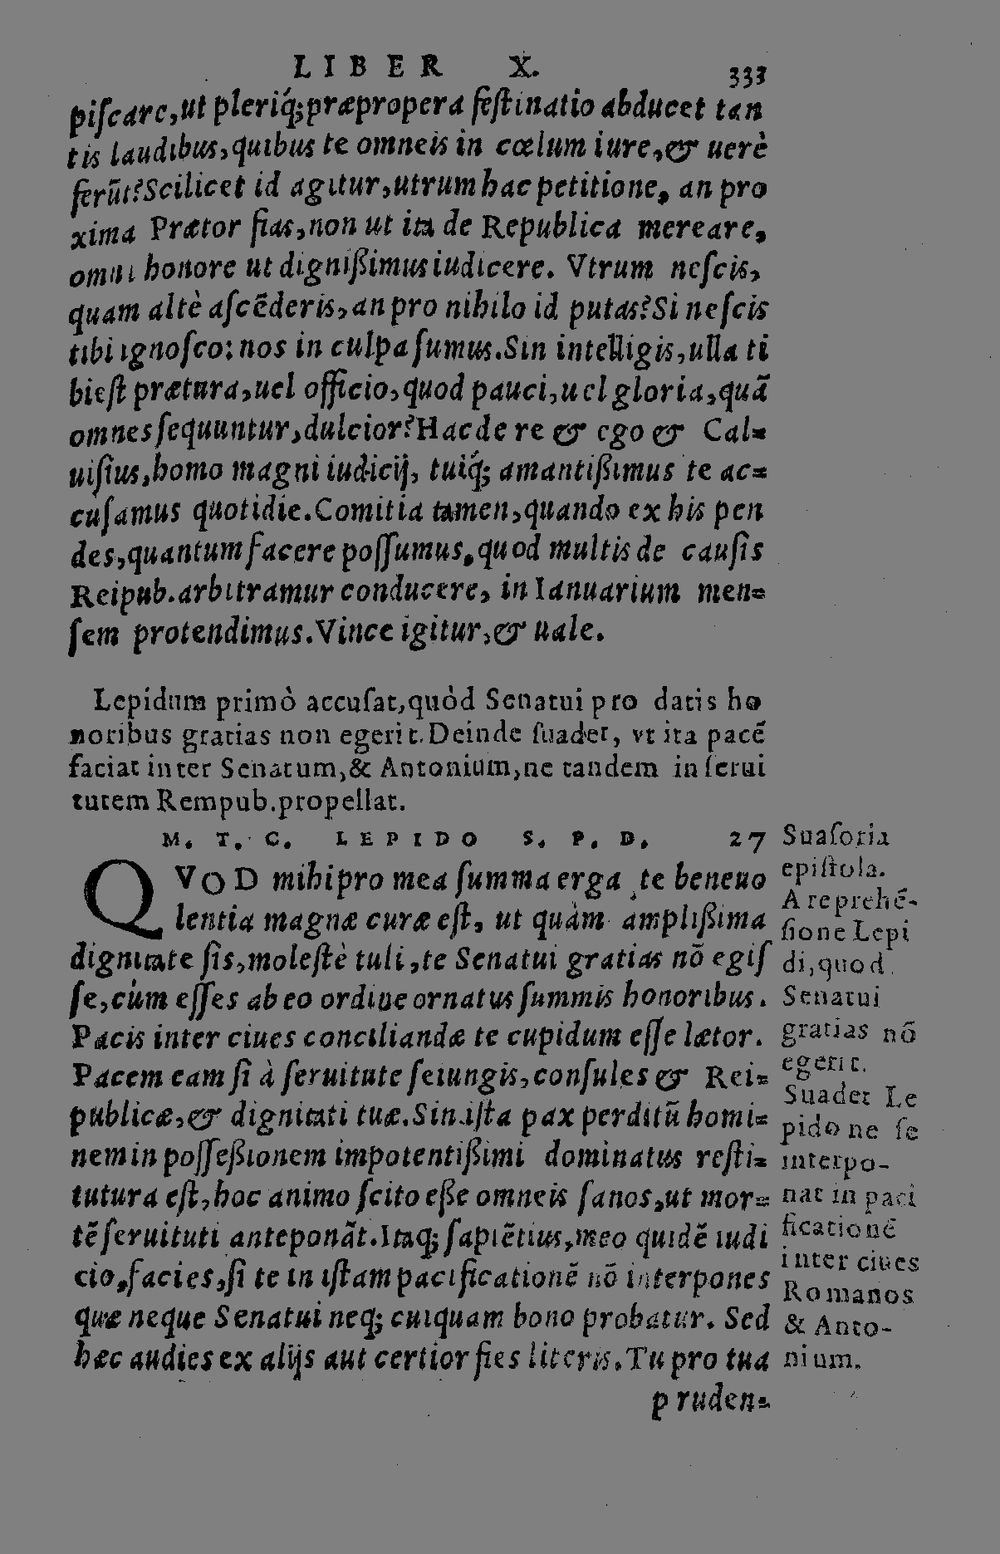 LIBER X. 333
piſcare, ut pleriq́; præpropera feſtinatio abducet tan
tis laudibus, quibus te omneis in cœlum iure, & uerè
ferūt? Scilicet id agitur, utrum hac petitione, an pro
xima Prætor fias, non ut ita de Republica mereare,
omni honore ut digniſsimus iudicere. Vtrum neſcis,
quam altè aſcēderis, an pro nihilo id putas? Si neſcis
tibi ignoſco: nos in culpa ſumus. Sin intelligis, ulla ti
bi eſt prætura, uel officio, quod pauci, uel gloria, quā
omnes ſequuntur, dulcior? Hac de re & ego & Cal-
uiſius, homo magni iudicij, tuiq́; amantiſsimus te ac-
cuſamus quotidie. Comitia tamen, quando ex his pen
des, quantum facere poſſumus, quod multis de cauſis
Reipub. arbitramur conducere, in Ianuarium men-
ſem protendimus. Vince igitur, & uale.
Lepidum primò accuſat, quòd Senatui pro datis ho
noribus gratias non egerit. Deinde ſuadet, vt ita pacē
faciat inter Senatum, & Antonium, ne tandem in ſerui
tutem Rempub. propellat.
M. T. C. LEPIDO S. P. D. 27
QVOD mihi pro mea ſumma erga te beneuo
lentia magnæ curæ eſt, ut quàm ampliſsima
dignitate ſis, moleſtè tuli, te Senatui gratias nō egiſ
ſe, cùm eſſes ab eo ordine ornatus ſummis honoribus.
Pacis inter ciues conciliandæ te cupidum eſſe lætor.
Pacem eam ſi à ſeruitute ſeiungis, conſules & Rei-
publicæ, & dignitati tuæ. Sin iſta pax perditū homi-
nem in poſſeſsionem impotentiſsimi dominatus reſti-
tutura eſt, hoc animo ſcito eſſe omneis ſanos, ut mor-
tē ſeruituti anteponāt. Itaq; ſapiētius, meo quidē iudi
cio, facies, ſi te in iſtam pacificationē nō interpones
quæ neque Senatui neq; cuiquam bono probatur. Sed
hæc audies ex alijs aut certior fies literis. Tu pro tua
pruden-
Suaſoria
epiſtola.
A reprehē-
ſione Lepi
di, quod
Senatui
gratias nō
egerit.
Suadet Le
pido ne ſe
interpo-
nat in paci
ficationē
inter ciues
Romanos
& Anto-
nium.